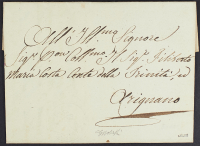 All' Ill.mo Signore
Sig.r Pron Col.mo Il Sig.r
Maria Costa Conte della Trinità, ad
Arignano